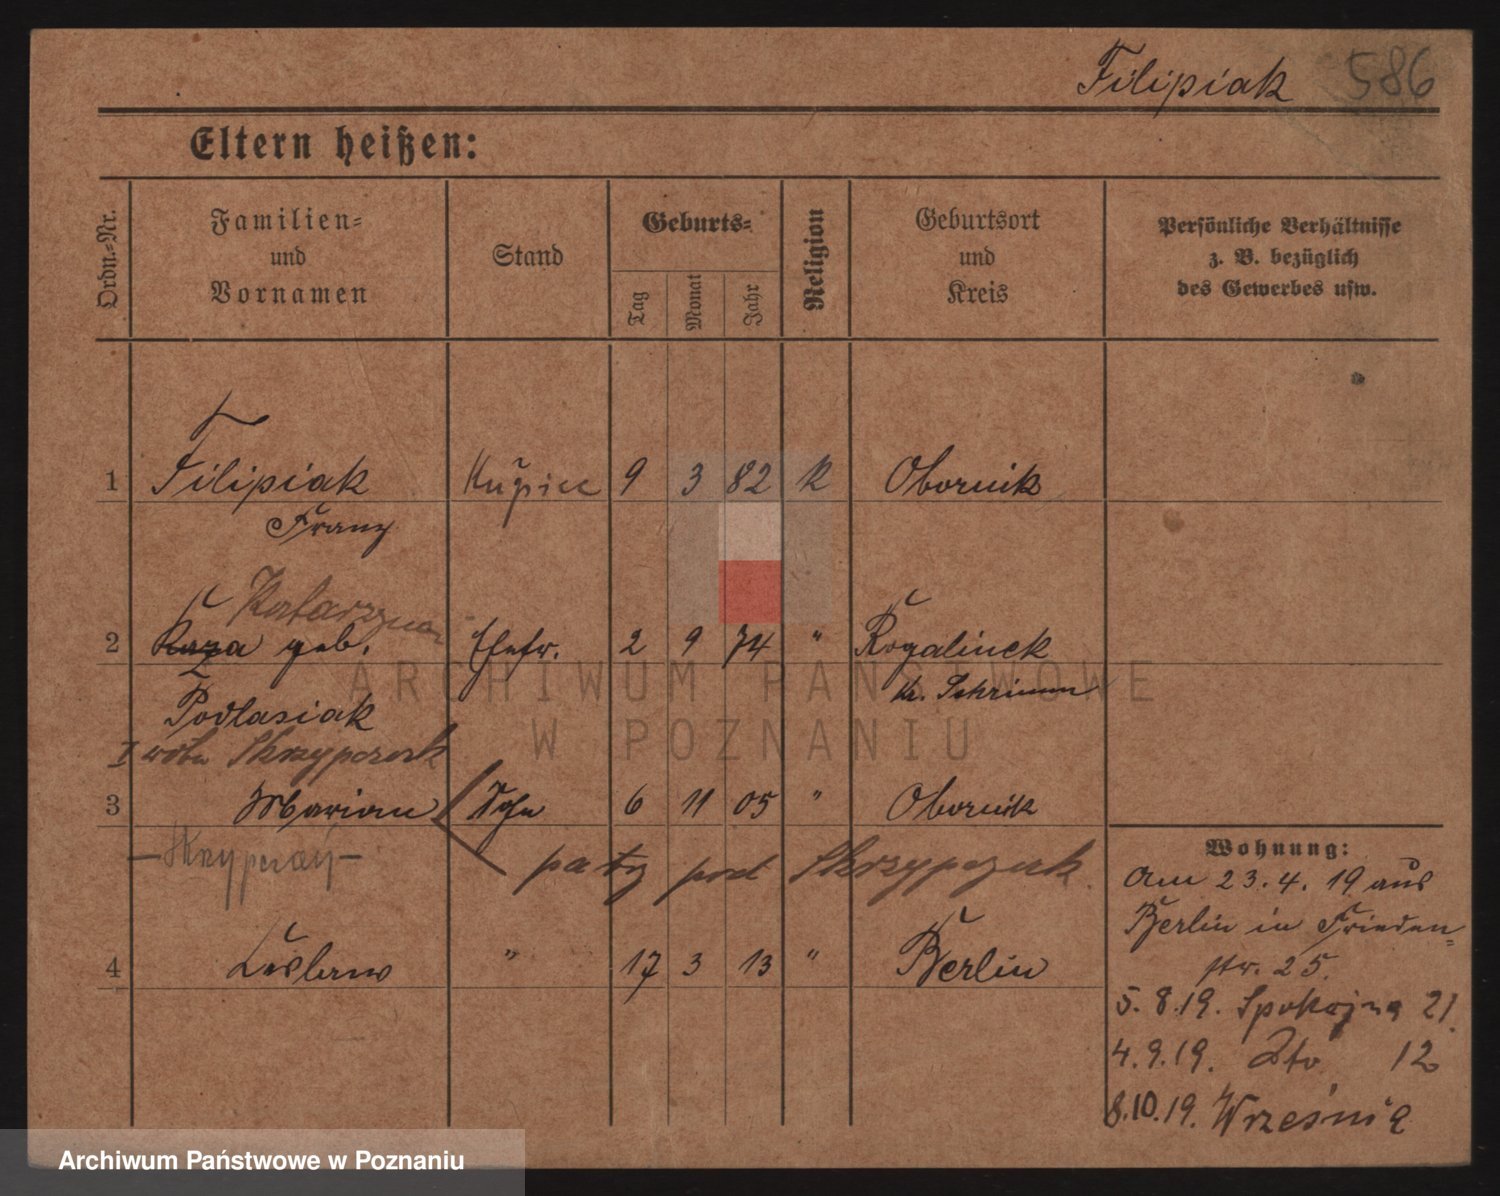 Filipiak 586
Eltern heißen:
Ordn.-Nr.
Familien-
und
Vornamen
Stand
Geburts-
Tag
Monat
Jahr
Religion
Geburtsort
und
Kreis
Persönliche Verhältnisse
z. B. bezüglich
des Gewerbes usw.
1 Filipiak Kupiec 9 3 82 K Obornik
Franz
Katarzyna
2 geb. Ehefr. 2 9 74 " Rogalinek
Podlasiak Kr. Schrimm
I voto Skrzypczak
3 Marian Sohn 6 11 05 " Obornik
patrz pod Skrzypczak
4 " 17 3 13 " Berlin
Wohnung:
Am 23.4.19 aus
Berlin in Frieden-
str. 25.
5.8.19. Spokojna 21.
4.9.19. Dto 12
8.10.19. Września
ARCHIWUM PAŃSTWOWE
W POZNANIU
Archiwum Państwowe w Poznaniu